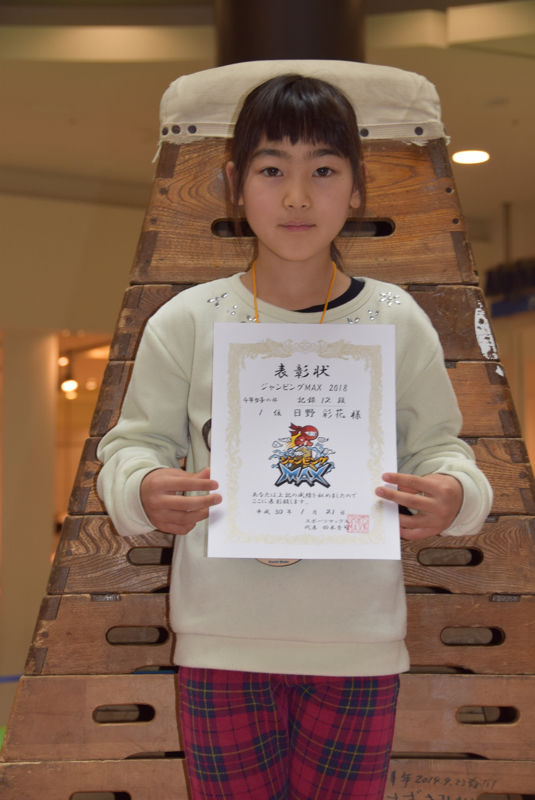 表彰状
ジャンピングMAX 2018
記録 12 段
1 位 日野 彩花 様
ジャンピング
MAX
あなたは上記の成績を納めましたので
ここに表彰致します。
平成 30 年 1 月 21 日
スポーツマックス
代表
年2014.9.23